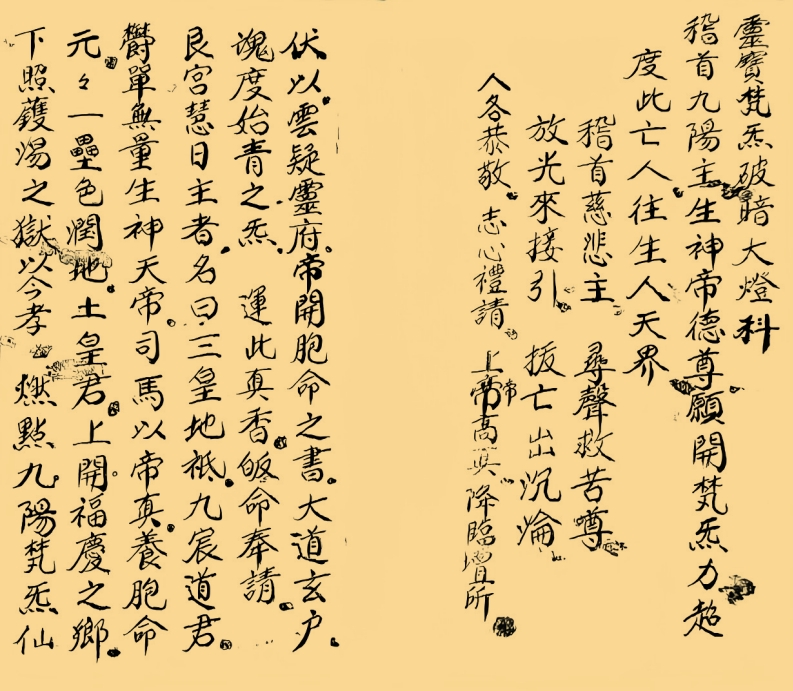 靈寶梵炁破暗大燈科
稽首九陽主生神帝德尊願開梵炁力超
度此亡人往生人天界
稽首慈悲主 尋聲救苦噂
放光來接引 拔亡出沉淪
人各恭敬 志心禮請 上帝高真降臨壇所
伏以雲疑靈府帝開胞命之書大道玄户
魂度始青之炁 運此真香皈命奉請
艮宮慧日主者名曰三皇地祇九宸道君
欝單無量生神天帝司馬以帝真養胞命
元々一壘色潤地土皇君上開福慶之鄉
下照鑊湯之獄以今孝 燃點九陽梵炁仙